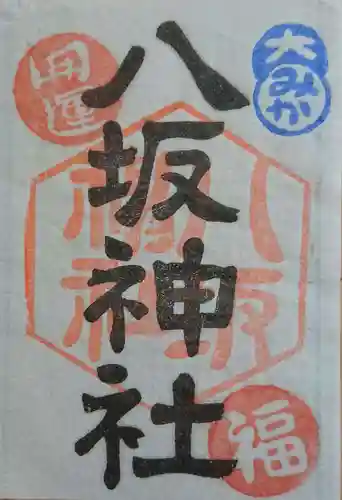 八坂神社
大みか
開運
福
八坂神社